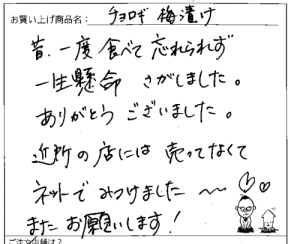 お買い上げ商品名： チョロギ 梅漬け
昔、一度食べて忘れられず
一生懸命 さがしました。
ありがとうございました。
近所の店には 売ってなくて
ネットで みつけました〜〜
またお願いします！